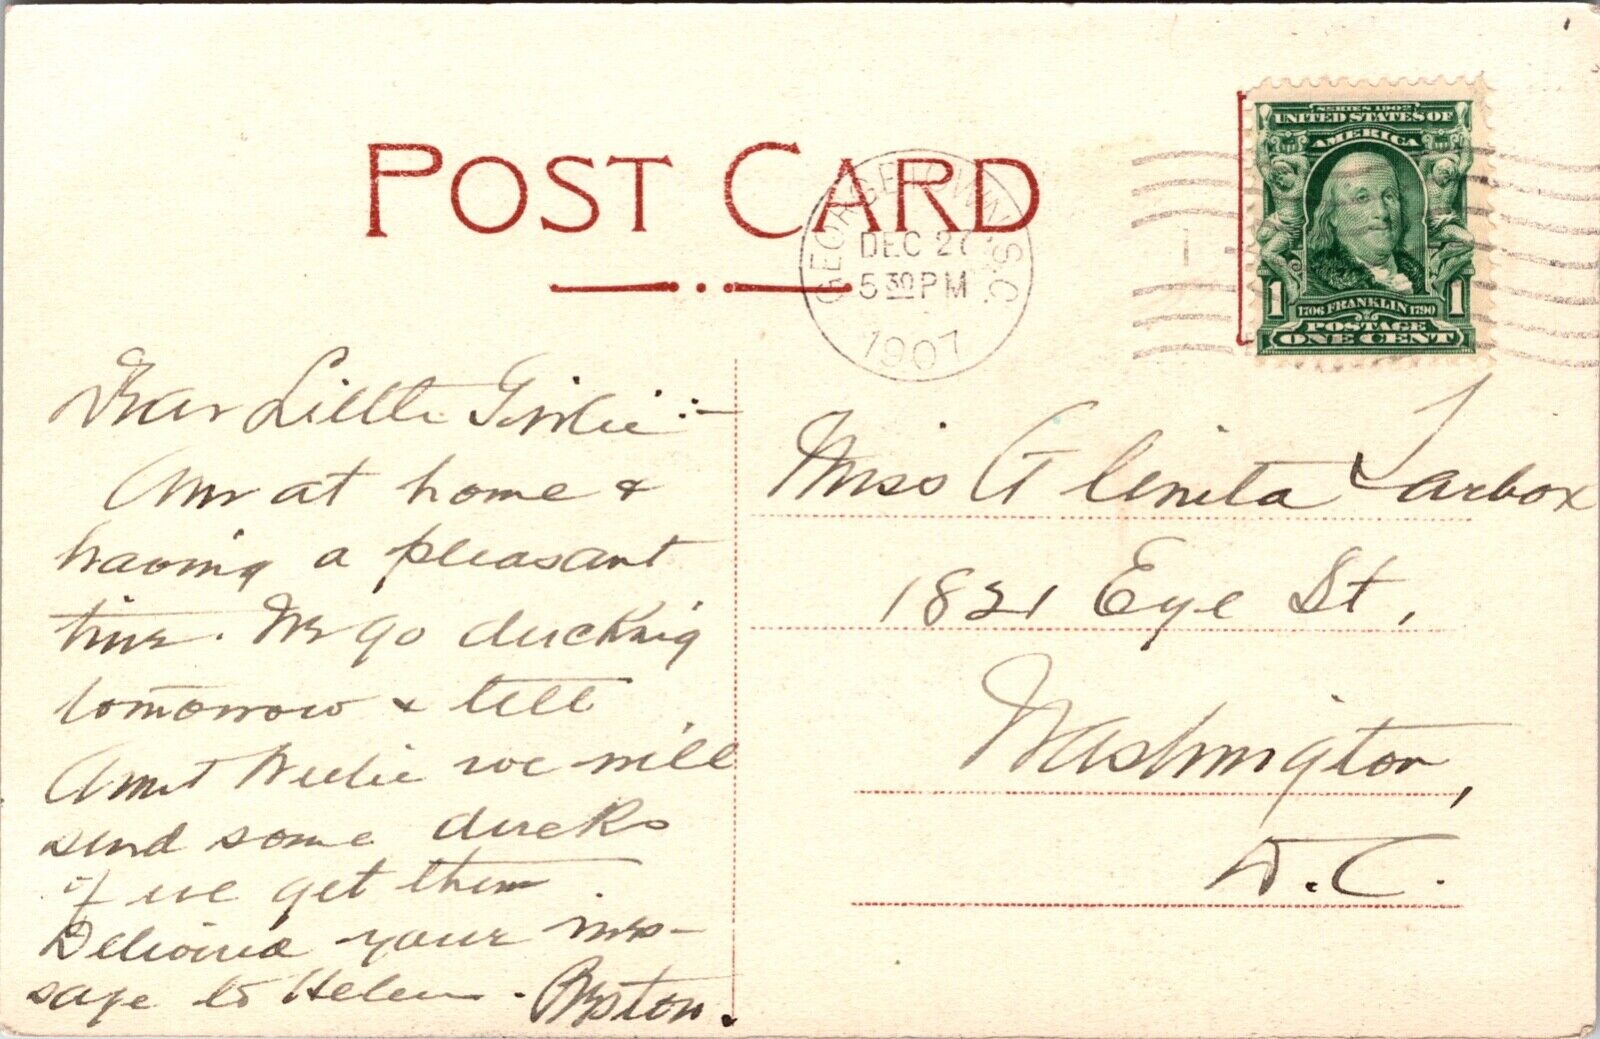 POST CARD
GEORGETOWN, S.C.
DEC 27
5 30 PM
1907
SERIES 1902
UNITED STATES OF
AMERICA
1 1706 FRANKLIN 1790 1
POSTAGE
ONE CENT
Dear Little Girlie:-
Am at home &
having a pleasant
time. We go ducking
tomorrow & tell
Aunt we will
send some ducks
if we get them.
Delivered your mes-
sage to Helen. Preston.
Miss Tarbox
1821 Eye St,
Washington,
D.C.